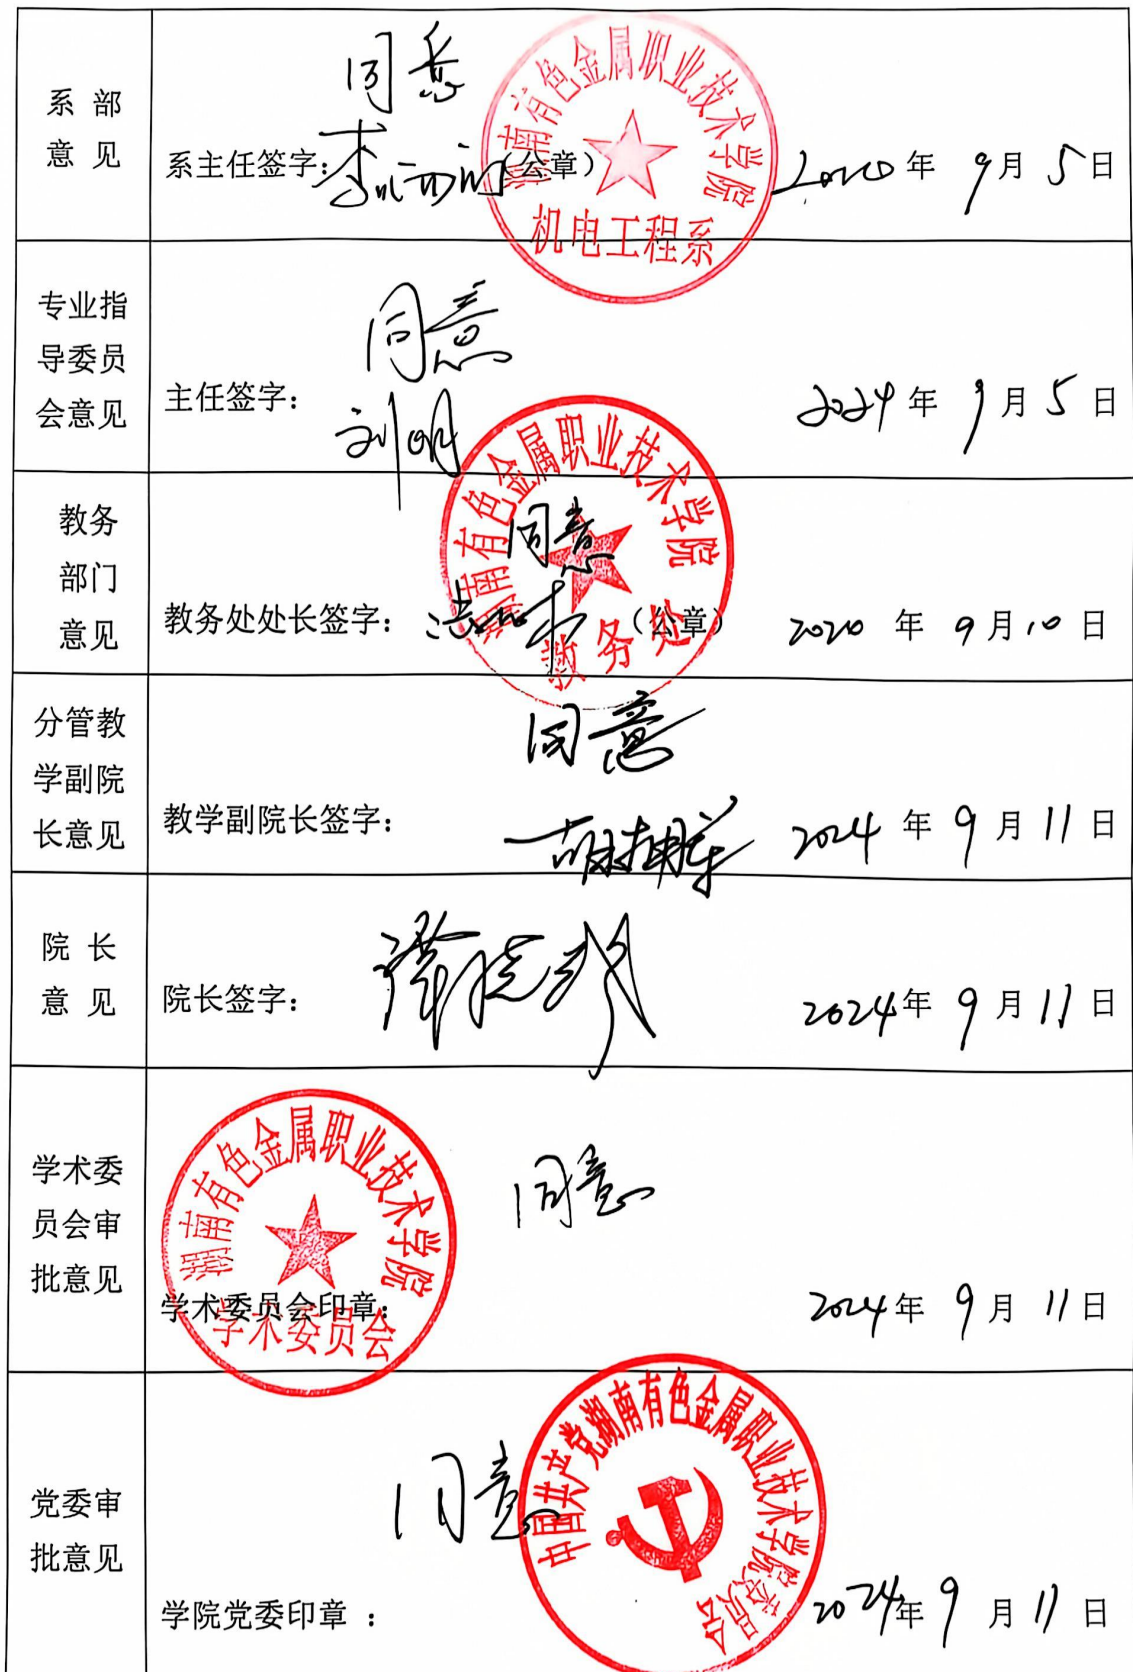 系 部
意 见
同意
系主任签字：
（公章）
湖南有色金属职业技术学院
机电工程系
2020 年 9 月 5 日
专业指
导委员
会意见
同意
主任签字：
刘明
2024 年 9 月 5 日
教务
部门
意见
同意
教务处处长签字：
（公章）
湖南有色金属职业技术学院
教务处
2020 年 9 月 10 日
分管教
学副院
长意见
同意
教学副院长签字：
胡拥军
2024 年 9 月 11 日
院 长
意 见
院长签字：
2024 年 9 月 11 日
学术委
员会审
批意见
同意
湖南有色金属职业技术学院
学术委员会
学术委员会印章：
2024 年 9 月 11 日
党委审
批意见
同意
中国共产党湖南有色金属职业技术学院委员会
学院党委印章 ：
2024 年 9 月 11 日